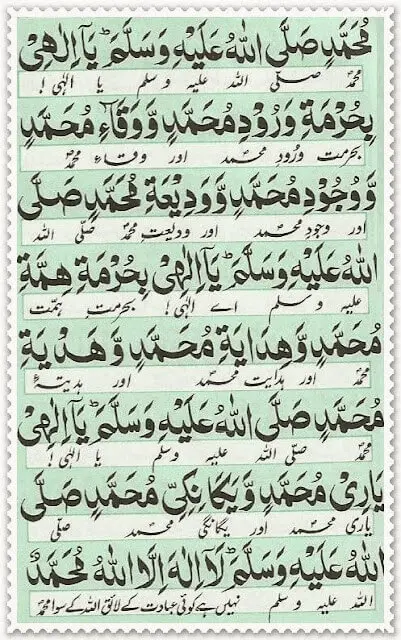 مُحَمَّدٍ صَلَّى اللهُ عَلَيْهِ وَسَلَّمَ ؕ يَاۤ اِلٰهِىْ
محمدؐ صلی اللہ علیہ وسلم یا الٰہی!
بِحُرْمَةِ وَرُوْدِ مُحَمَّدٍ وَّوَقَآءِ مُحَمَّدٍ
بحرمت ورُودِ محمد اور وقاءِ محمدؐ
وَّوُجُوْدِ مُحَمَّدٍ وَّوَدِيْعَةِ مُحَمَّدٍ صَلَّى
اور وجودِ محمد اور ودیعتِ محمدؐ صلّی اللہ
اللهُ عَلَيْهِ وَسَلَّمَ ؕ يَاۤ اِلٰهِىْ بِحُرْمَةِ هِمَّةِ
علیہ وسلم اے الٰہی! بحرمتِ ہمّت
مُحَمَّدٍ وَّهِدَايَةِ مُحَمَّدٍ وَّهَدْيَةِ
محمدؐ اور ہدایت محمد اور ہدیۂ
مُحَمَّدٍ صَلَّى اللهُ عَلَيْهِ وَسَلَّمَ ؕ يَاۤ اِلٰهِىْ
محمدؐ صلی اللہ علیہ وسلم یا الٰہی!
يَارِىْ مُحَمَّدٍ وَّيَگَانَگِىْ مُحَمَّدٍ صَلَّى
یاری محمد اور یگانگی محمد صلی
اللهُ عَلَيْهِ وَسَلَّمَ لَاۤ اِلٰهَ اِلَّا اللهُ مُحَمَّدٌ
اللہ علیہ وسلم نہیں ہے کوئی عبادت کے لائق اللہ کے سوا محمدؐ